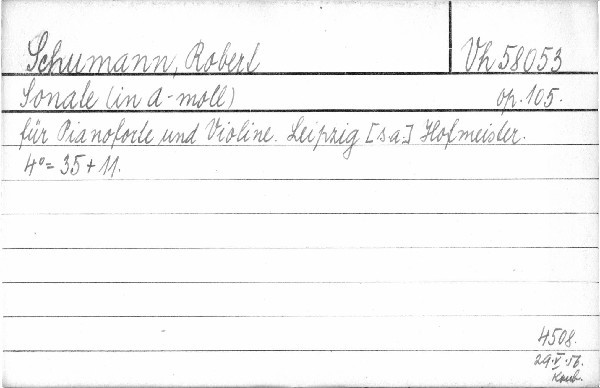 Schumann, Robert Vh 58053
Sonate (in d-moll) op. 105.
für Pianoforte und Violine. Leipzig [s.a.] Hofmeister.
4° = 35 + 11.
4508.
29.V.56.